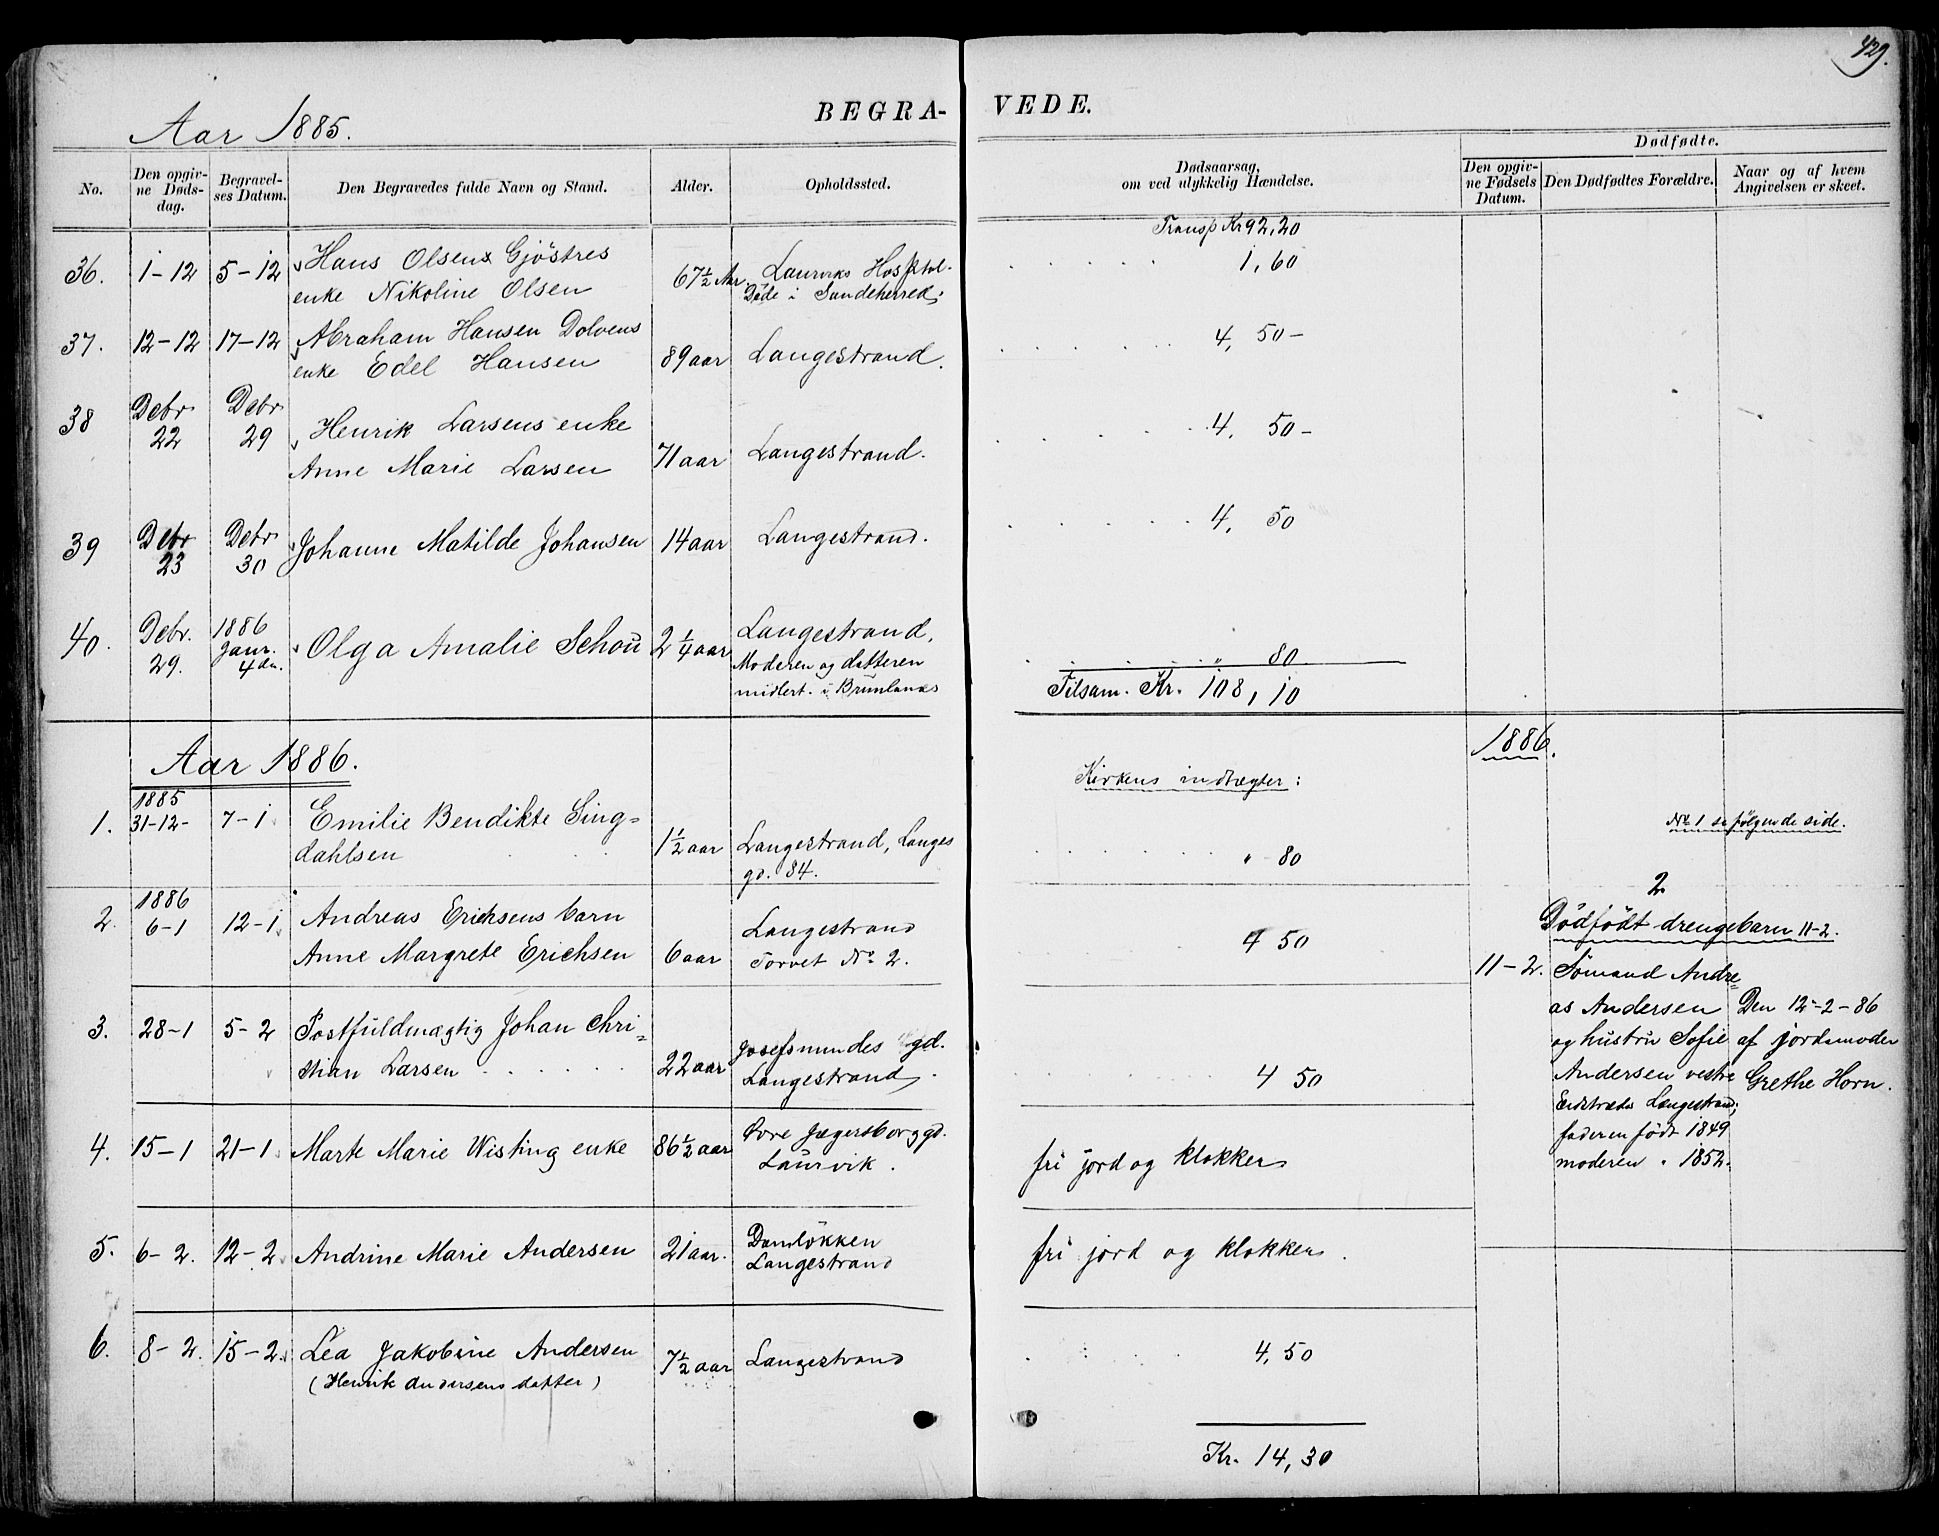 429.
BEGRAVEDE.
Aar 1885.
No.
Den opgivne Dødsdag.
Begravelses Datum.
Den Begravedes fulde Navn og Stand.
Alder.
Opholdssted.
Dødsaarsag, om ved ulykkelig Hændelse.
Dødfødte.
Den opgivne Fødsels Datum.
Den Dødfødtes Forældre.
Naar og af hvem Angivelsen er skeet.
Transp Kr 92,20
36. 1-12 5-12 Hans Olsens Gjöstres
enke Nikoline Olsen 67½ Aar Laurviks Hospital.
Döde i Sandeherred.
1,60
37. 12-12 17-12 Abraham Hansen Dolvens
enke Edel Hansen 89 aar Langestrand.
4, 50-
38 Debr 22 Debr 29 Henrik Larsens enke
Anne Marie Larsen 71 aar Langestrand.
4, 50-
39 Debr 23 Debr 30 Johanne Matilde Johansen 14 aar Langestrand.
4, 50
40. Debr. 29. 1886 Janr. 4de. Olga Amalie Schou 2¼ aar Langestrand,
Moderen og datteren
midlert. i Brunlanæs
" 80
Tilsam. Kr. 108,10
Aar 1886.
Kirkens indtægter:
1. 1885 31-12- 7-1 Emilie Bendikte Sing=
dahlsen 1½ aar Langestrand, Langes
gd. 84.
" 80
2. 1886 6-1 12-1 Andreas Erichsens barn
Anne Margrete Erichsen 6 aar Langestrand
Torvet No 2.
4 50
3. 28-1 5-2 Postfuldmægtig Johan Chri=
stian Larsen 22 aar Josefsmindes gd.
Langestrand.
4 50
4. 15-1 21-1 Marte Marie Wisting enke 86½ aar Övre Jægersborggd.
Laurvik.
fri jord og klokker
5. 6-2. 12-2 Andrine Marie Andersen 21 aar. Damlökken
Langestrand
fri jord og klokker.
6. 8-2. 15-2. Lea Jakobine Andersen
(Henrik Andersens datter) 7½ aar Langestrand
4,50
Kr. 14,30
1886.
No 1 se følgende side.
2
Dödfödt drengebarn 11-2.
11-2. Sömand Andre=
as Andersen
og hustru Sofie
Andersen vestre
Langestrand,
faderen födt 1849
moderen " 1852.
Den 12-2-86
af jordemoder
Grethe Horn.